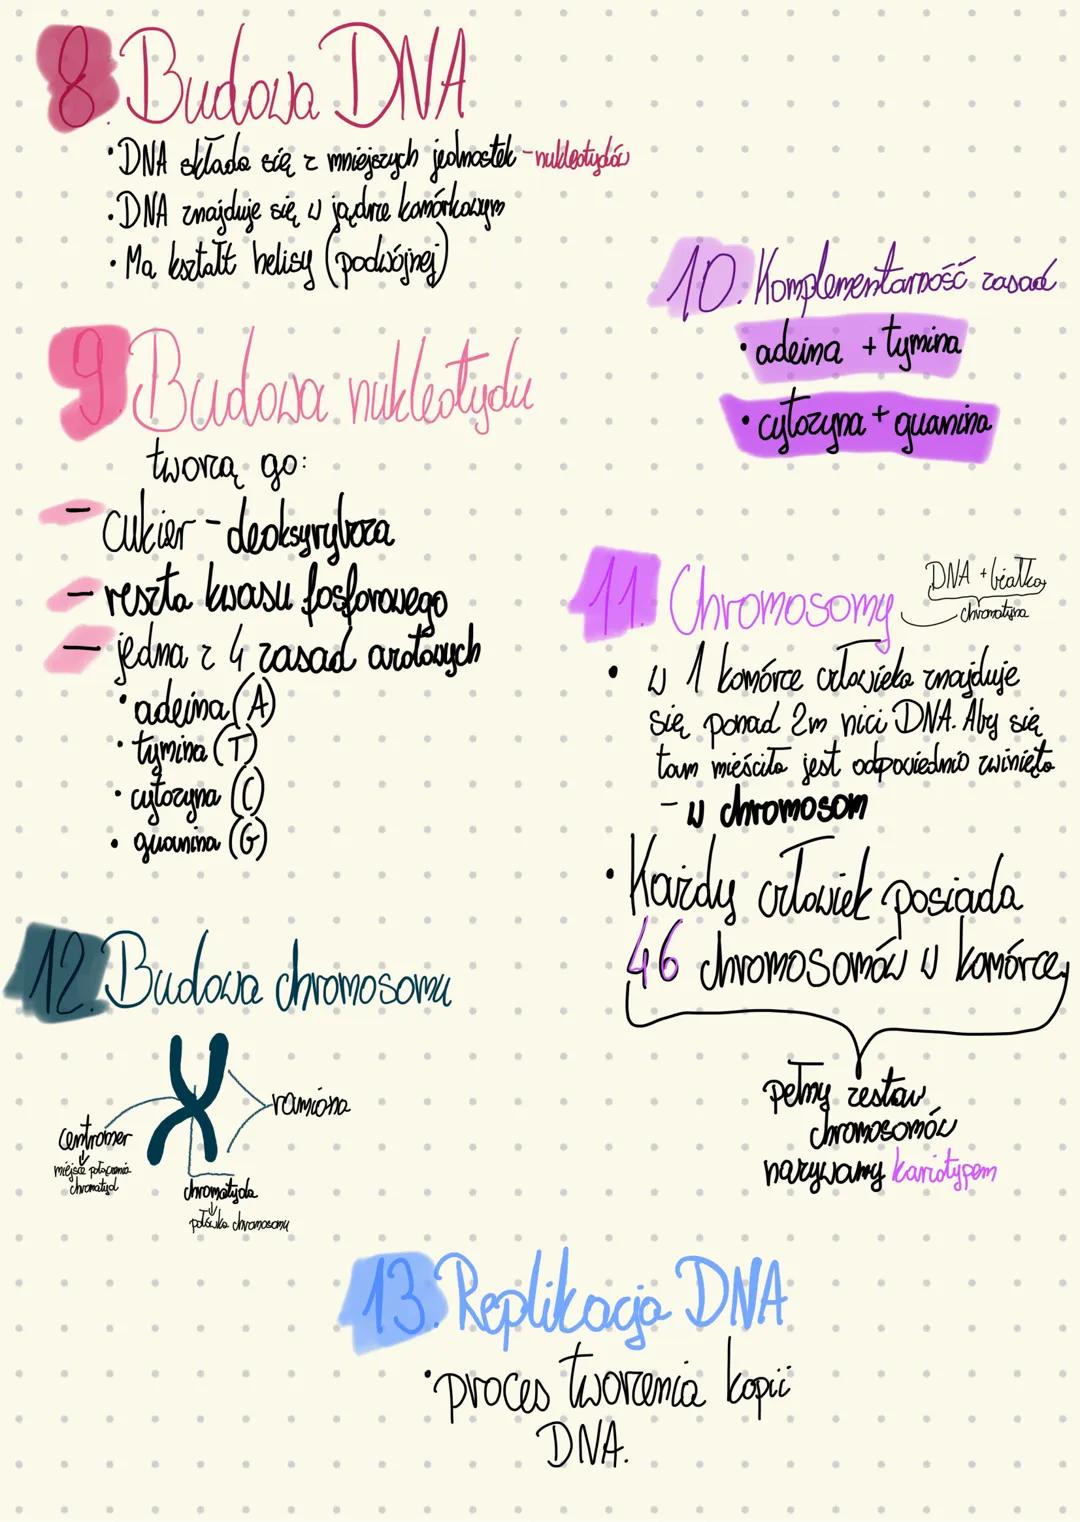 8. Budowa DNA
• DNA składa się z mniejszych jednostek - nukleotydów
• DNA znajduje się w jądrze komórkowym
• Ma kształt helisy (podwójnej)
9. Budowa nukleotydu
tworzą go:
- cukier - deoksyryboza
- reszta kwasu fosforowego
- jedna z 4 zasad azotowych
• adeina (A)
• tymina (T)
• cytozyna (C)
• guanina (G)
10. Komplementarność zasad
• adeina + tymina
• cytozyna + guanina
11. Chromosomy
DNA + białko
chromatyna
• w 1 komórce człowieka znajduje
się ponad 2m nici DNA. Aby się
tam mieściło jest odpowiednio zwinięta
- w chromosom
• Każdy człowiek posiada
46 chromosomów w komórce
pełny zestaw
chromosomów
nazywamy kariotypem
12. Budowa chromosomu
ramiona
centromer
miejsce połączenia
chromatyd
chromatyda
połówka chromosomu
13. Replikacja DNA
• proces tworzenia kopii
DNA.